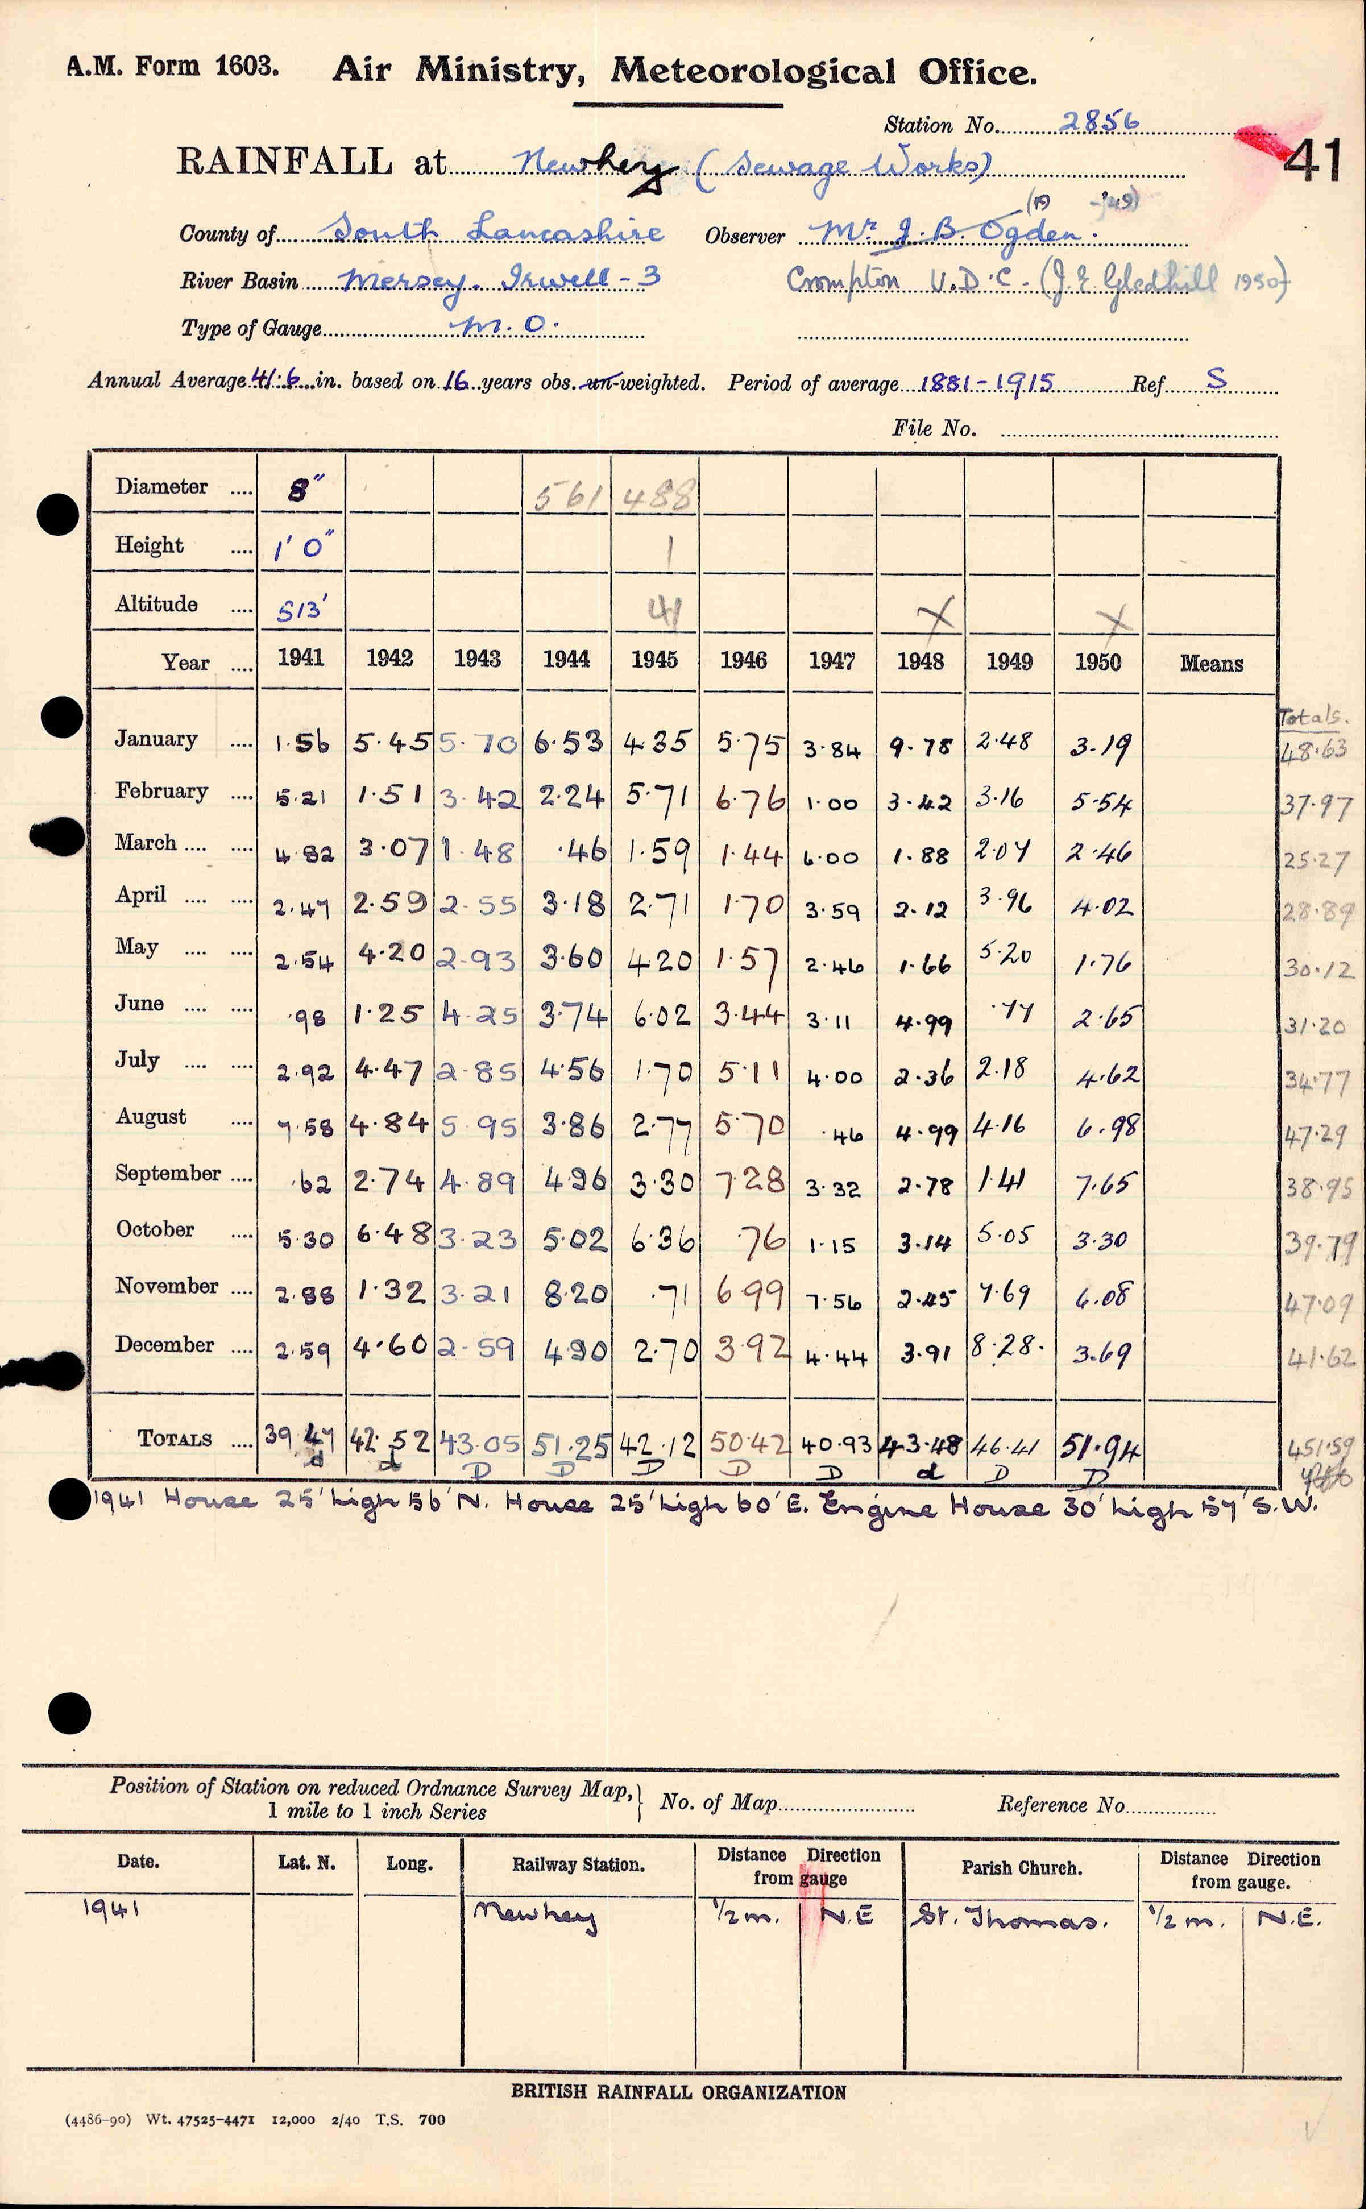 A.M. Form 1603. Air Ministry, Meteorological Office.
Station No. 2856
41
RAINFALL at Newhey (Sewage Works)
(19 -'49)
County of South Lancashire Observer Mr J. B. Ogden.
River Basin Mersey. Irwell - 3 Crompton U.D.C. (J.E. Gledhill 1950)
Type of Gauge M.O.
Annual Average 41.6 in. based on 16 years obs. un-weighted. Period of average 1881-1915 Ref S
File No.
Diameter .... 8" 561 488
Height .... 1' 0" 1
Altitude .... 513' 41 X X
Year .... 1941 1942 1943 1944 1945 1946 1947 1948 1949 1950 Means
Totals.
January .... 1.56 5.45 5.70 6.53 4.35 5.75 3.84 9.78 2.48 3.19 48.63
February .... 5.21 1.51 3.42 2.24 5.71 6.76 1.00 3.42 3.16 5.54 37.97
March .... .... 4.82 3.07 1.48 .46 1.59 1.44 6.00 1.88 2.07 2.46 25.27
April .... .... 2.47 2.59 2.55 3.18 2.71 1.70 3.59 2.12 3.96 4.02 28.89
May .... .... 2.54 4.20 2.93 3.60 4.20 1.57 2.46 1.66 5.20 1.76 30.12
June .... .... .98 1.25 4.25 3.74 6.02 3.44 3.11 4.99 .77 2.65 31.20
July .... .... 2.92 4.47 2.85 4.56 1.70 5.11 4.00 2.36 2.18 4.62 34.77
August .... 7.58 4.84 5.95 3.86 2.77 5.70 .46 4.99 4.16 6.98 47.29
September .... .62 2.74 4.89 4.96 3.30 7.28 3.32 2.78 1.41 7.65 38.95
October .... 5.30 6.48 3.23 5.02 6.36 .76 1.15 3.14 5.05 3.30 39.79
November .... 2.88 1.32 3.21 8.20 .71 6.99 7.56 2.45 7.69 6.08 47.09
December .... 2.59 4.60 2.59 4.90 2.70 3.92 4.44 3.91 8.28. 3.69 41.62
TOTALS .... 39.47 42.52 43.05 51.25 42.12 50.42 40.93 43.48 46.41 51.94 451.59
d d D D D D D d D D
1941 House 25' high 56' N. House 25' high 60' E. Engine House 30' high 57' S.W.
Position of Station on reduced Ordnance Survey Map, 1 mile to 1 inch Series } No. of Map Reference No.
Date. Lat. N. Long. Railway Station. Distance Direction from gauge Parish Church. Distance Direction from gauge.
1941 Newhey 1/2 m. N.E St. Thomas. 1/2 m. N.E.
BRITISH RAINFALL ORGANIZATION
(4486-90) Wt. 47525-4471 12,000 2/40 T.S. 700